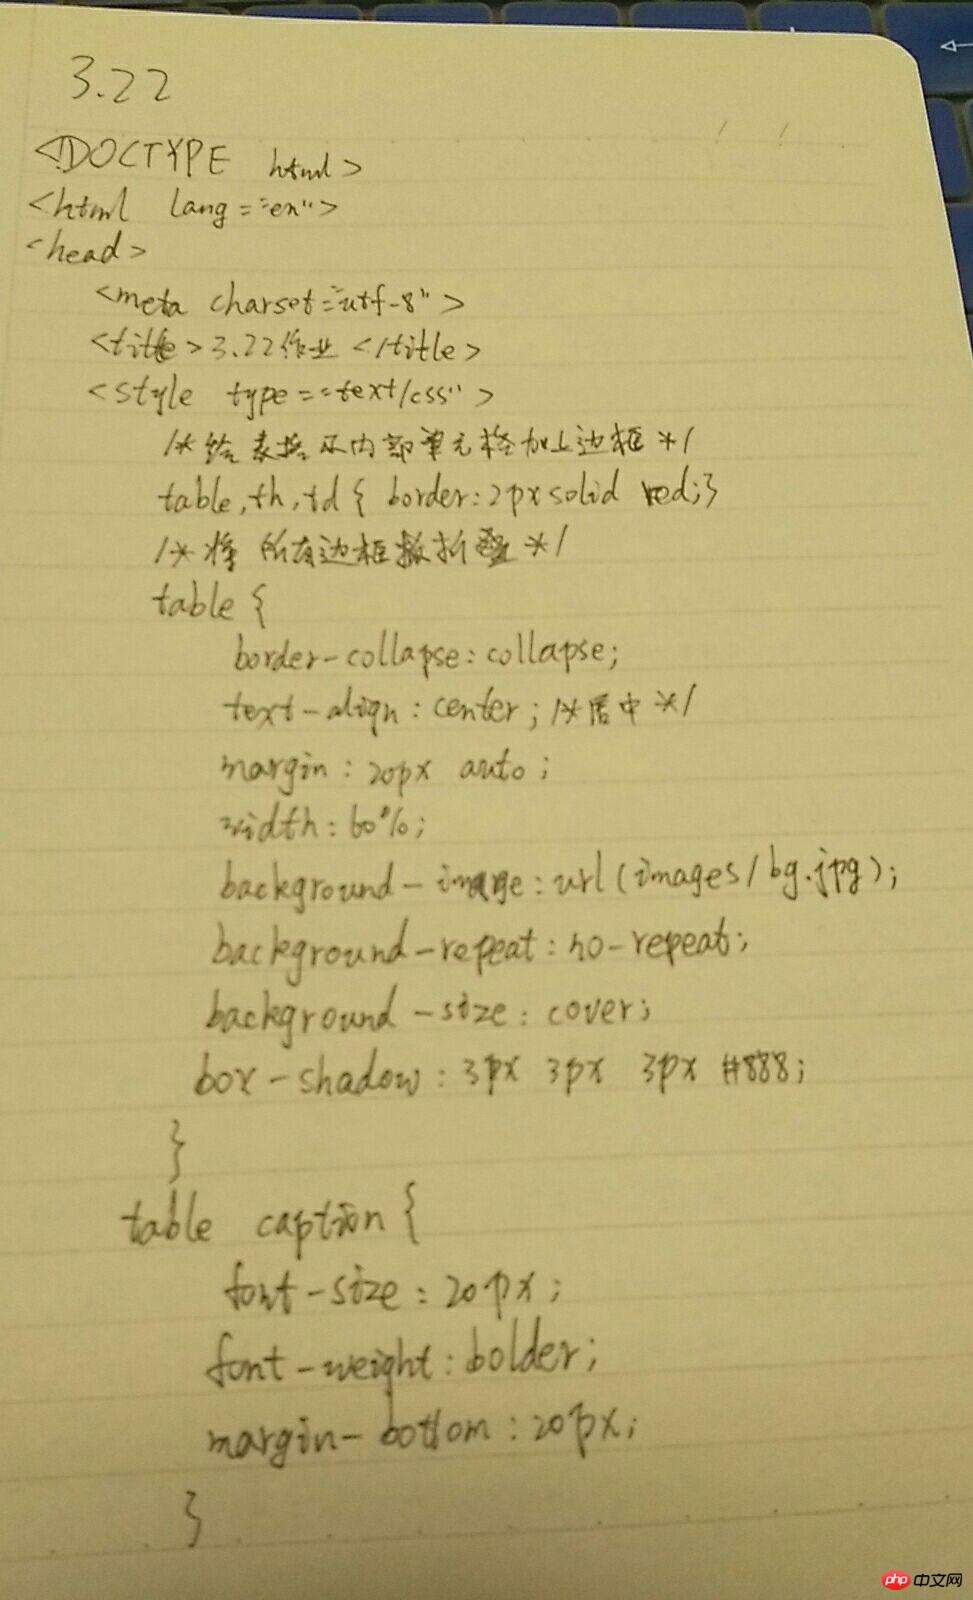 3.22
<!DOCTYPE html>
<html lang="en">
<head>
<meta charset="utf-8">
<title>3.22作业</title>
<style type="text/css">
/*给表格及内部单元格加上边框*/
table,th,td{ border:2px solid red;}
/*将所有边框折叠*/
table{
border-collapse:collapse;
text-align:center; /*居中*/
margin:20px auto;
width:60%;
background-image:url(images/bg.jpg);
background-repeat:no-repeat;
background-size:cover;
box-shadow:3px 3px 3px #888;
}
table caption{
font-size:20px;
font-weight:bolder;
margin-bottom:20px;
}
php 中文网